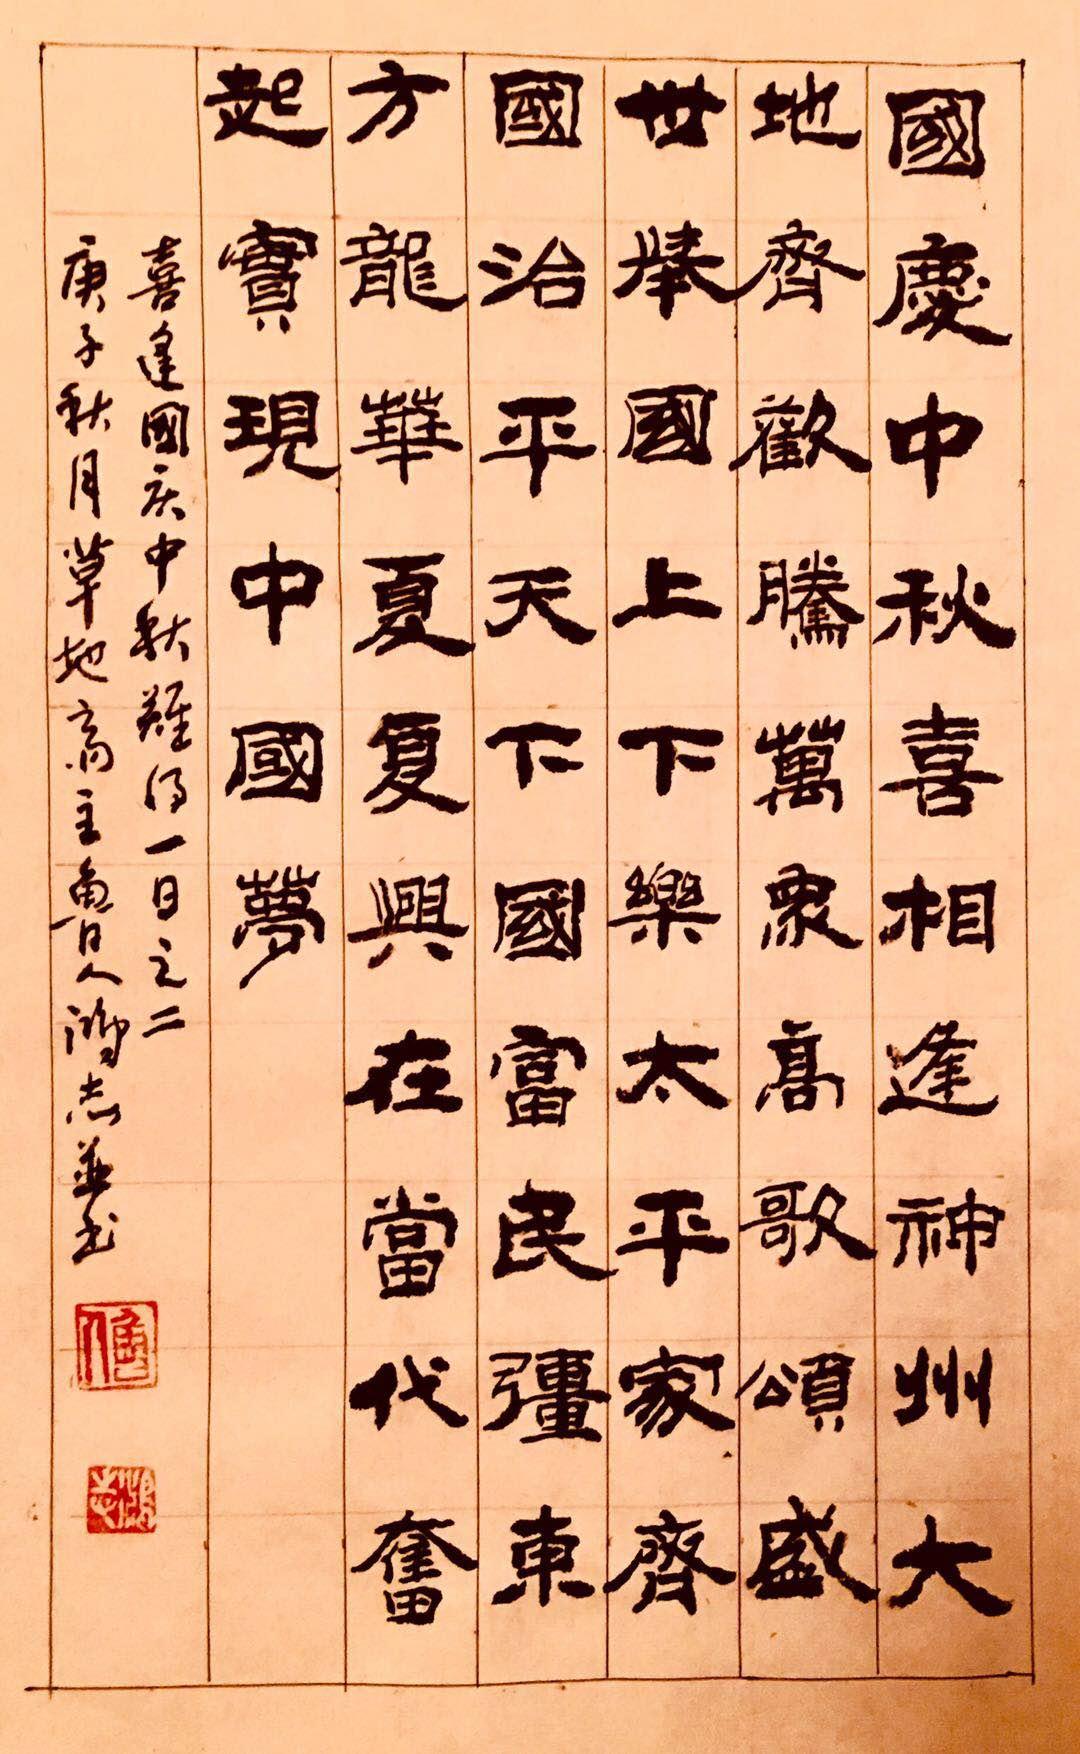 國慶中秋喜相逢神州大
地齊歡騰萬衆高歌頌盛
世舉國上下樂太平家齊
國治平天下國富民彊東
方龍華夏夏興在當代奮
起實現中國夢
喜逢國庆中秋難得一日之二
庚子秋月草地斋主魯人鴻志並书
魯人
鴻志